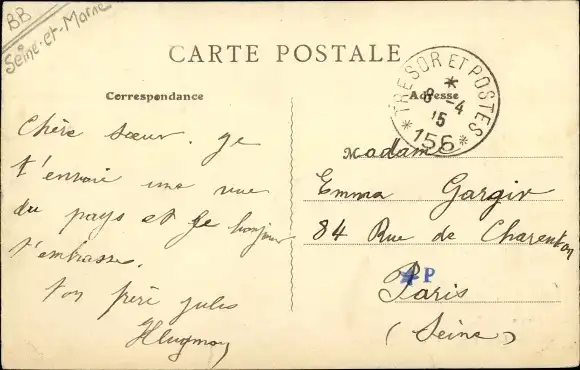 BB
Seine-et-Marne
CARTE POSTALE
Correspondance
Adresse
TRESOR ET POSTES
8-4
15
* 156 *
Chère sœur. Je
t'envoie une vue
du pays et Je bonjour
t'embrasse.
ton frère jules
Madame
Emma Gargir
84 Rue de Charenton
P
Paris
(Seine)